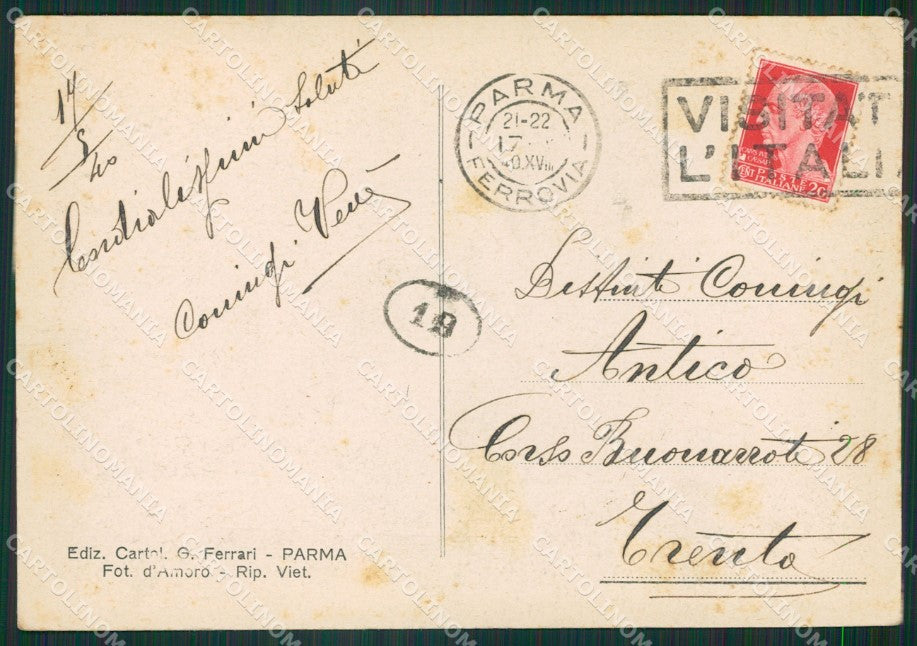 17/5/40
Cordialissimi Saluti
Coniugi Venè
PARMA
21-22
17
40.XVIII
FERROVIA
VISITAT
L'ITALI
POSTE
ITALIANE
18
Coniugi
Antico
Corso Buonarroti 28
Trento
Ediz. Cartol. G. Ferrari - PARMA
Fot. d'Amoro - Rip. Viet.
CARTOLINOMANIA